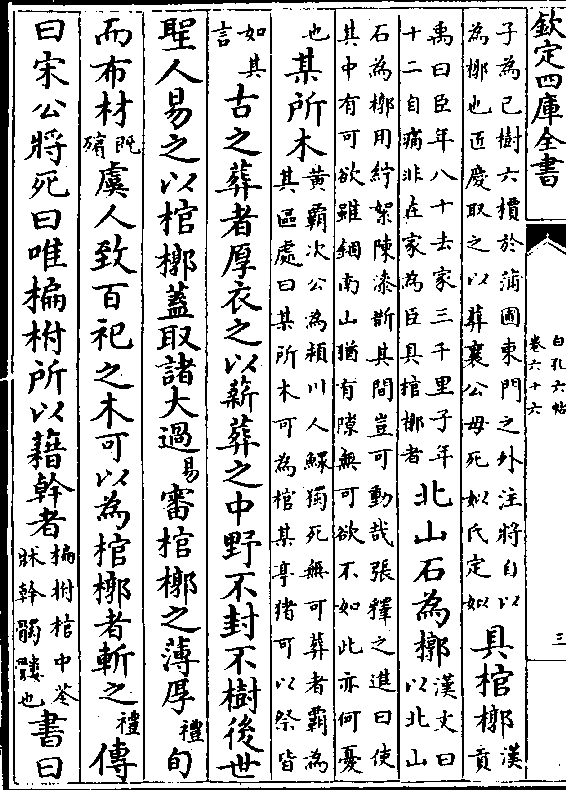 欽定四庫全書
白孔六帖
卷六十六
三
子為已樹六檟於蒲圃東門之外注將自以
為槨也匠慶取之以葬襄公母死姒氏定姒
具棺槨
漢
貢
禹曰臣年八十去家三千里子年
十二自痛非在家為臣具棺槨者
北山石為槨
漢文曰
以北山
石為槨用紵絮陳漆斮其間豈可動哉張釋之進曰使
其中有可欲雖錮南山猶有隙無可欲不如此亦何憂
也
某所木
黃霸次公為頴川人鰥獨死無可葬者霸為
其區處曰某所木可為棺某亭猪可以祭皆
如其
言
古之葬者厚衣之以薪葬之中野不封不樹後世
聖人易之以棺槨蓋取諸大過 易 審棺槨之薄厚 禮 旬
而布材
既
殯
虞人致百祀之木可以為棺槨者斬之 禮 傳
曰宋公將死曰唯楄柎所以藉幹者
楄柎棺中苓
牀幹髑髏也
書曰